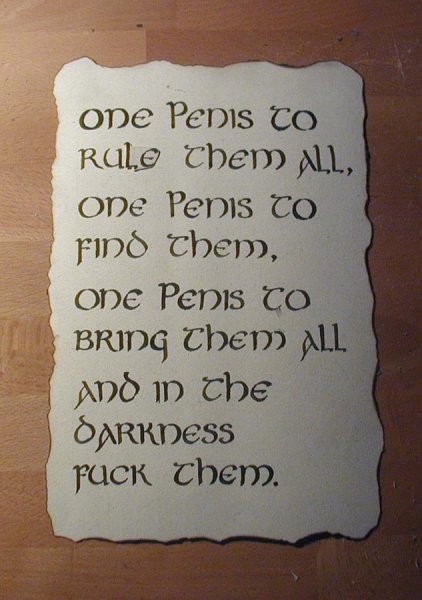 one penis to
rule them all,
one penis to
find them,
one penis to
bring them all
and in the
darkness
fuck them.